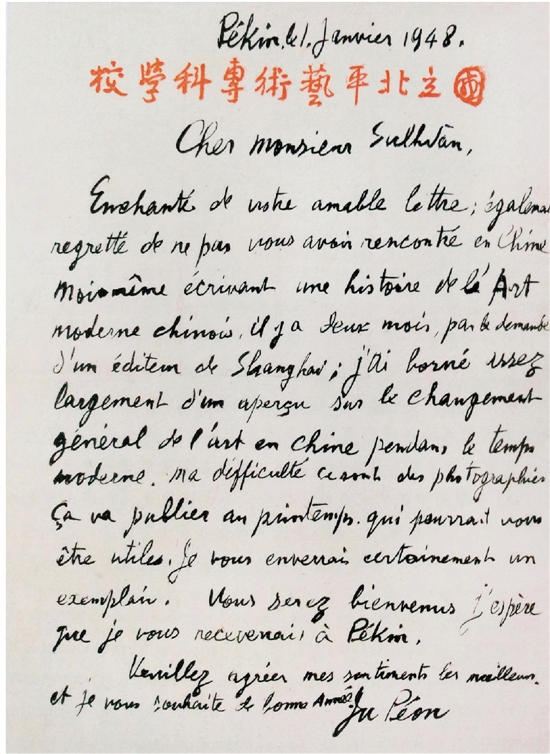 Pékin, le 1. Janvier 1948.
國立北平藝術專科學校
Cher Monsieur Sullivan,
Enchanté de votre amable lettre; également
regretté de ne pas vous avoir rencontré en Chine
Moi-même écrivant une histoire de l'Art
moderne chinois, il y a deux mois, par la demande
d'un éditeur de Shanghai; j'ai borné assez
largement d'un aperçu sur le changement
général de l'art en Chine pendans le temps
moderne. ma difficulté ce sont des photographies
Ça va publier au printemps. qui pourrait vous
être utiles. Je vous enverrais certainement un
exemplair. Vous serez bienvenus j'espère
que je vous recevrais à Pékin.
Veuillez agréer mes sentiments les meilleurs.
et je vous souhaite le bonne Année
Ju Péon